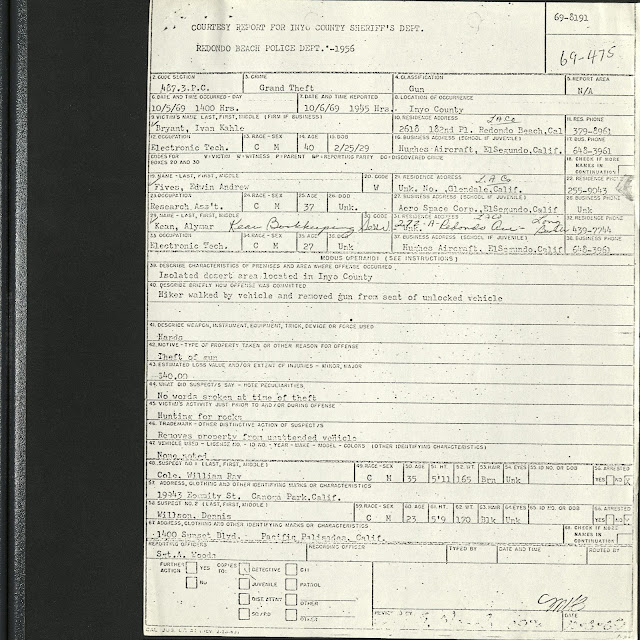 69-8191
COURTESY REPORT FOR INYO COUNTY SHERIFF'S DEPT.
REDONDO BEACH POLICE DEPT.-1956
69-475
2. CODE SECTION 3. CRIME 4. CLASSIFICATION 5. REPORT AREA
487.3 P.C. Grand Theft Gun N/A
6. DATE AND TIME OCCURRED - DAY 7. DATE AND TIME REPORTED 8. LOCATION OF OCCURRENCE
10/5/69 1400 Hrs. 10/6/69 1945 Hrs. Inyo County
9. VICTIM'S NAME LAST, FIRST, MIDDLE (FIRM IF BUSINESS) 10. RESIDENCE ADDRESS LA Co 11. RES. PHONE
Bryant, Ivan Kahle 2618 182nd Pl. Redondo Beach, Cal 379-8061
12. OCCUPATION 13. RACE - SEX 14. AGE 15. DOB 16. BUSINESS ADDRESS (SCHOOL IF JUVENILE) 17. BUS. PHONE
Electronic Tech. C M 40 2/25/29 Hughes Aircraft, ElSegundo, Calif. 648-3961
CODES FOR BOXES 20 AND 30 V = VICTIM W = WITNESS P = PARENT RP = REPORTING PARTY DC = DISCOVERED CRIME 18. CHECK IF MORE NAMES IN CONTINUATION
19. NAME - LAST, FIRST, MIDDLE 20. CODE 21. RESIDENCE ADDRESS L.A Co 22. RESIDENCE PHONE
Fives, Edwin Andrew W Unk. No., Glendale, Calif. 255-9043
23. OCCUPATION 24. RACE - SEX 25. AGE 26. DOB 27. BUSINESS ADDRESS (SCHOOL IF JUVENILE) 28. BUSINESS PHONE
Research Ass't. C M 37 Unk. Aero Space Corp., ElSegundo, Calif Unk
29. NAME - LAST, FIRST, MIDDLE 30. CODE 31. RESIDENCE ADDRESS 32. RESIDENCE PHONE
Kean, Alymar Kean Bookkeeping Redondo Ave Long Beach 439-7744
33. OCCUPATION 34. RACE - SEX 35. AGE 36. DOB 37. BUSINESS ADDRESS (SCHOOL IF JUVENILE) 38. BUSINESS PHONE
Electronic Tech. C M 27 Unk Hughes Aircraft, ElSegundo, Calif. 648-3961
MODUS OPERANDI (SEE INSTRUCTIONS)
39. DESCRIBE CHARACTERISTICS OF PREMISES AND AREA WHERE OFFENSE OCCURRED
Isolated desert area located in Inyo County
40. DESCRIBE BRIEFLY HOW OFFENSE WAS COMMITTED
Hiker walked by vehicle and removed gun from seat of unlocked vehicle
41. DESCRIBE WEAPON, INSTRUMENT, EQUIPMENT, TRICK, DEVICE OR FORCE USED
Hands
42. MOTIVE - TYPE OF PROPERTY TAKEN OR OTHER REASON FOR OFFENSE
Theft of gun
43. ESTIMATED LOSS VALUE AND/OR EXTENT OF INJURIES - MINOR, MAJOR
$40.00
44. WHAT DID SUSPECT/S SAY - NOTE PECULIARITIES
No words spoken at time of theft
45. VICTIM'S ACTIVITY JUST PRIOR TO AND/OR DURING OFFENSE
Hunting for rocks
46. TRADEMARK - OTHER DISTINCTIVE ACTION OF SUSPECT/S
Removes property from unattended vehicle
47. VEHICLE USED - LICENSE NO. - ID NO. - YEAR - MAKE - MODEL - COLORS (OTHER IDENTIFYING CHARACTERISTICS)
None noted
48. SUSPECT NO. 1 (LAST, FIRST, MIDDLE) 49. RACE - SEX 50. AGE 51. HT. 52. WT. 53. HAIR 54. EYES 55. ID NO. OR DOB 56. ARRESTED
Cole, William Ray C M 35 5'11 165 Brn Unk YES NO X
57. ADDRESS, CLOTHING AND OTHER IDENTIFYING MARKS OR CHARACTERISTICS
19943 Equality St. Canoga Park, Calif.
58. SUSPECT NO. 2 (LAST, FIRST, MIDDLE) 59. RACE - SEX 60. AGE 61. HT. 62. WT. 63. HAIR 64. EYES 65. ID NO. OR DOB 66. ARRESTED
Willson, Dennis C M 23 5'9 150 Blk Unk YES NO X
67. ADDRESS, CLOTHING AND OTHER IDENTIFYING MARKS OR CHARACTERISTICS 68. CHECK IF MORE NAMES IN CONTINUATION
1400 Sunset Blvd. Pacific Palisades, Calif.
REPORTING OFFICERS RECORDING OFFICER TYPED BY DATE AND TIME ROUTED BY
Sgt. A. Woods
FURTHER ACTION YES NO COPIES TO: DETECTIVE CII
JUVENILE PATROL
DIST. ATTNY OTHER
SO/PD OTHER
REVIEWED BY DATE